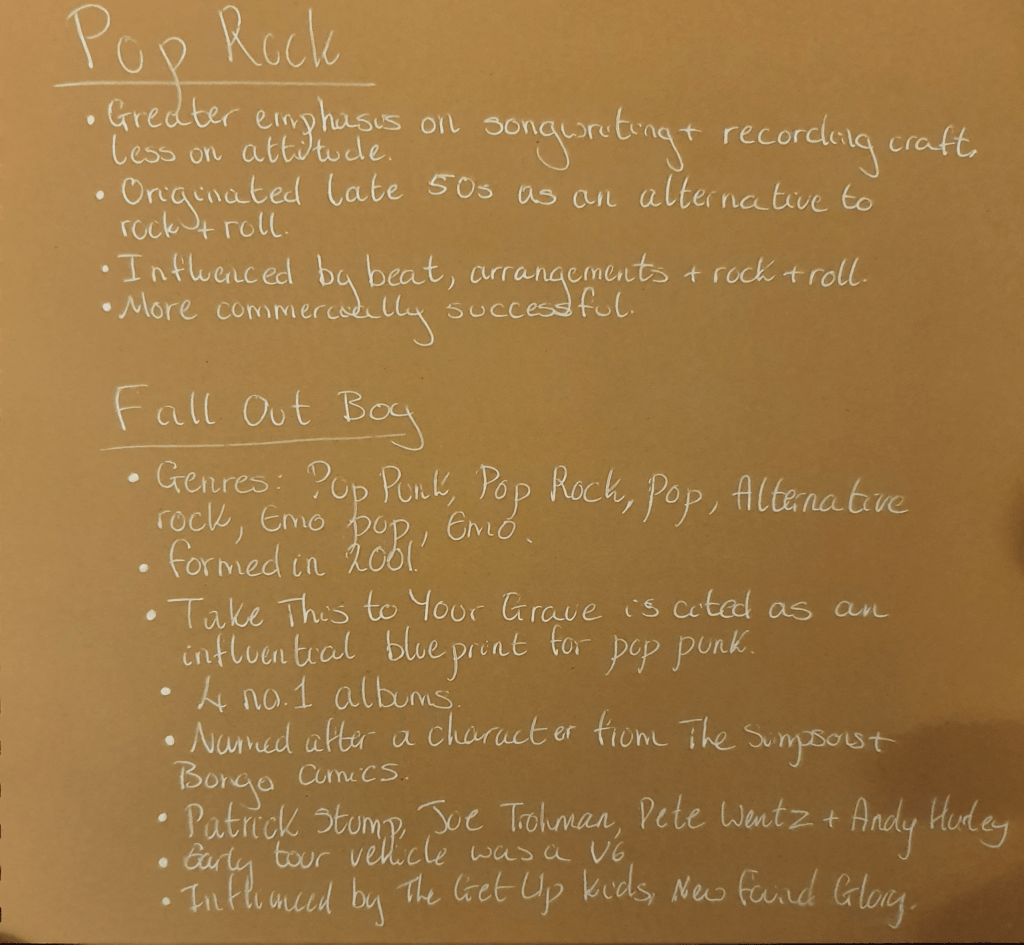 Pop Rock
• Greater emphasis on songwriting + recording craft,
less on attitude.
• Originated late 50s as an alternative to
rock + roll.
• Influenced by beat, arrangements + rock + roll.
• More commercially successful.
Fall Out Boy
• Genres: Pop Punk, Pop Rock, Pop, Alternative
rock, Emo pop, Emo.
• formed in 2001.
• Take This to Your Grave is cited as an
influential blueprint for pop punk.
• 4 no.1 albums.
• Named after a character from The Simpsons +
Bongo Comics.
• Patrick Stump, Joe Trohman, Pete Wentz + Andy Hurley
• Early tour vehicle was a V6
• Influenced by The Get Up Kids, New Found Glory.